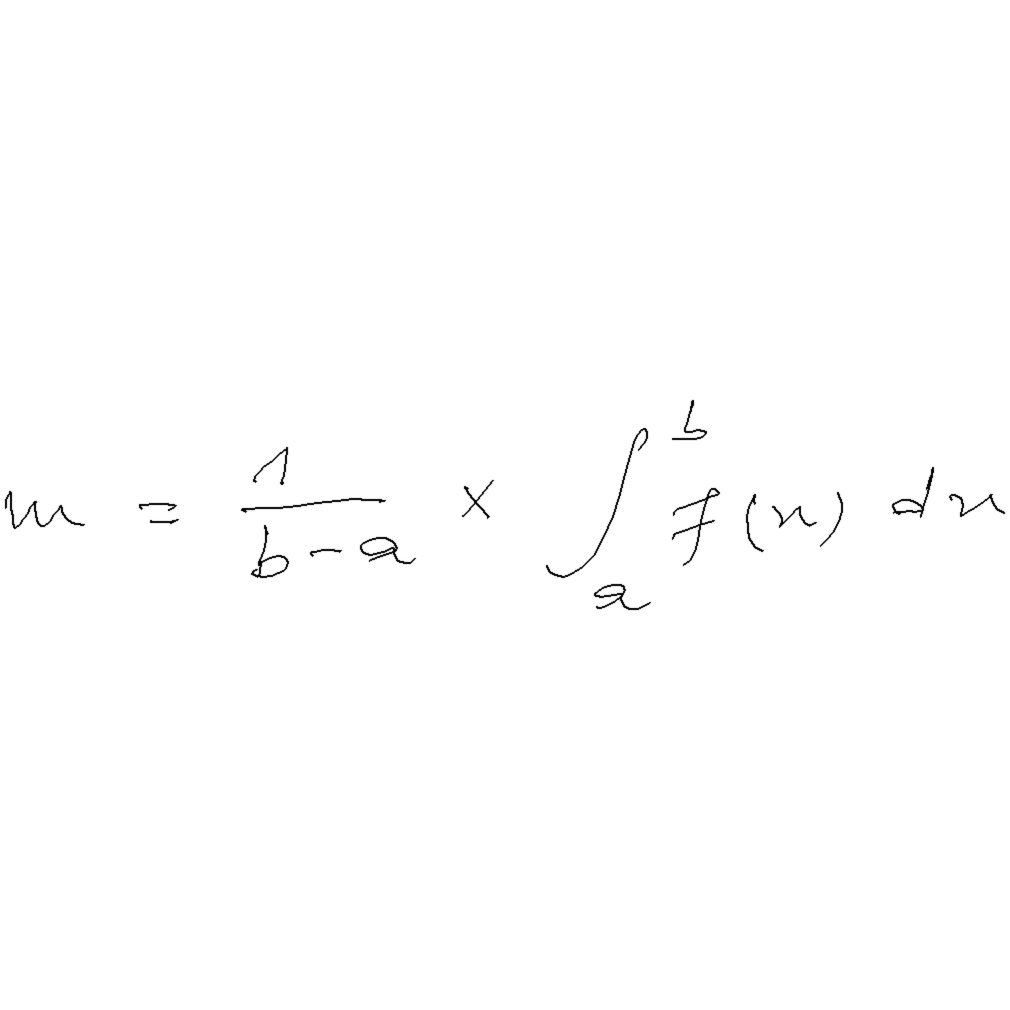 m = \frac{1}{b-a} \times \int_{a}^{b} f(x) dx